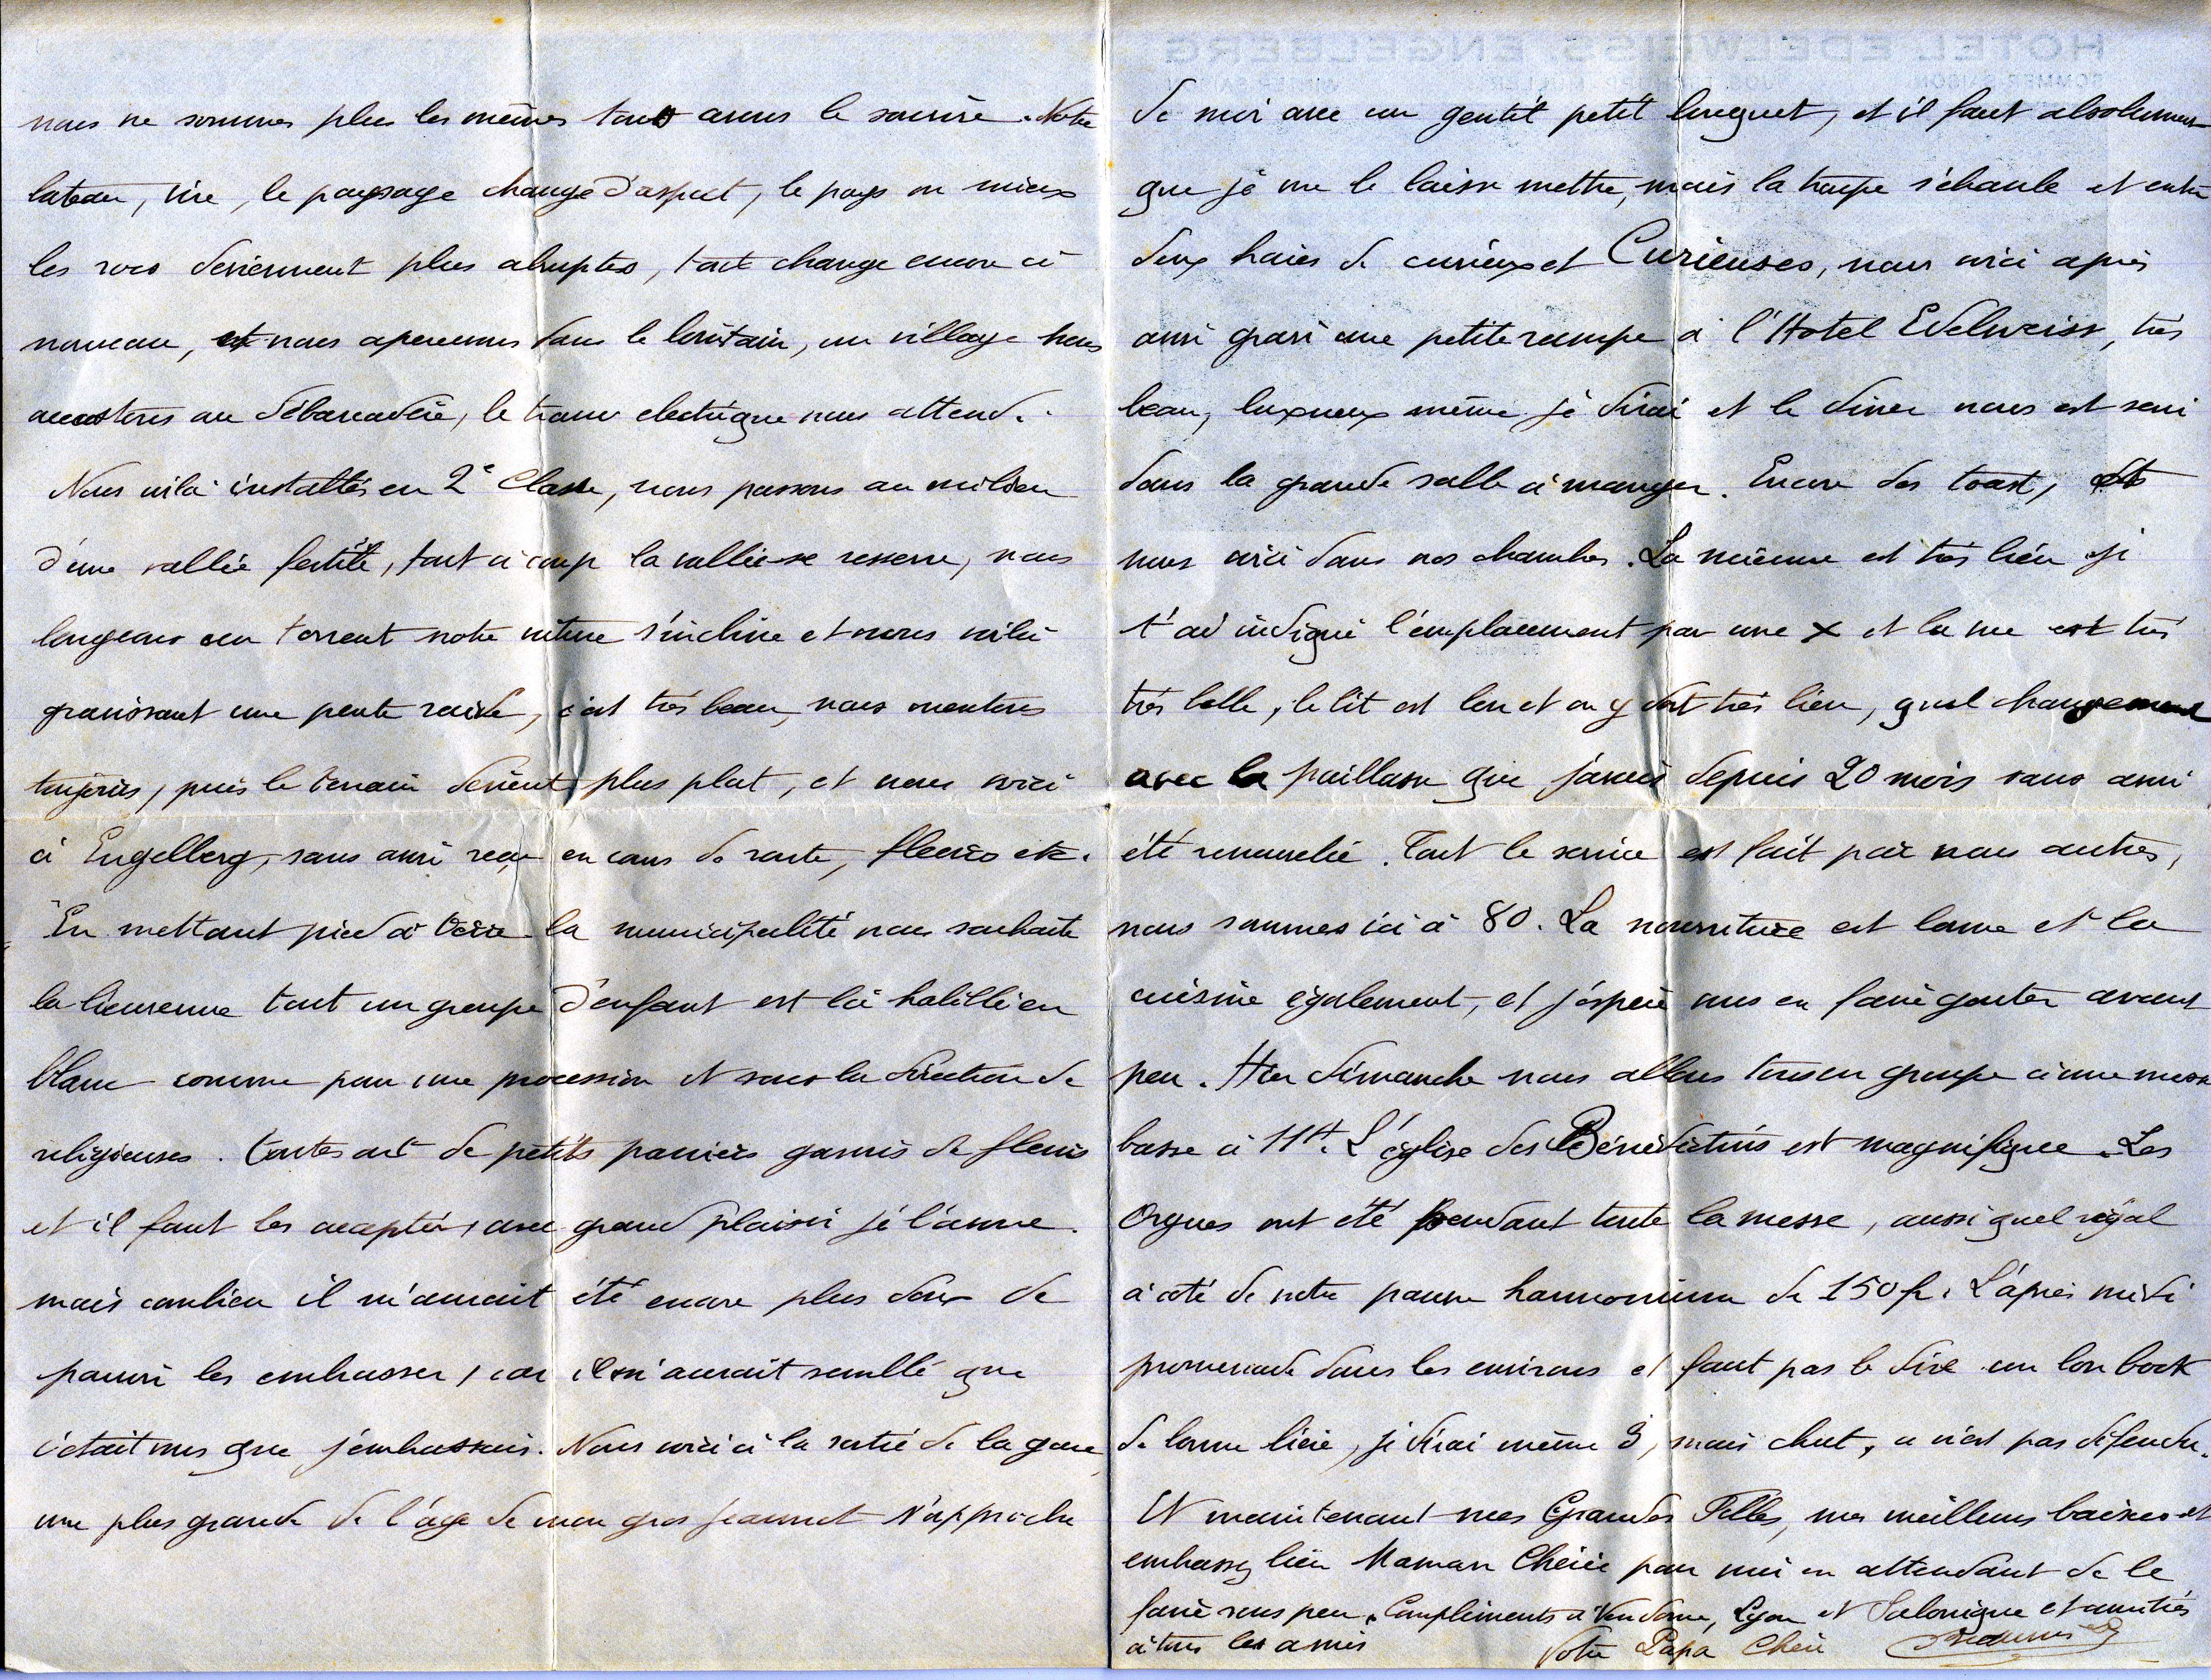 nous ne sommes plus les mêmes tous avons le sourire. Notre
bateau, vire, le paysage change d'aspect, le pays ou mieux
les rocs deviennent plus abruptes, tout change encore à
nouveau, et nous apercevons dans le lointain, un village nous
accostons au débarcadère, le tram electrique nous attend.
Nous voilà installés en 2e Classe, nous passons au milieu
d'une vallée fertile, tout à coup la vallée se resserre, nous
longeons un torrent notre voiture s'incline et nous voilà
gravissant une pente raide, c'est très beau, nous montons
toujours, puis le terrain devient plus plat, et nous voici
à Engelberg, sans avoir reçu en cours de route, fleurs etc.
En mettant pied à terre la municipalité nous souhaite
la bienvenue tout un groupe d'enfant est là habillé en
blanc comme pour une procession et sous la direction de
religieuses. Toutes ont de petits paniers garnis de fleurs
et il faut les accepter, avec grand plaisir je l'avoue.
mais combien il m'aurait été encore plus doux de
pouvoir les embrasser, car il m'aurait semblé que
c'était vous que j'embrassais. Nous voici à la sortie de la gare,
une plus grande de l'âge de mon gros jeannot s'approche
HOTEL EDELWEISS, ENGELBERG
de moi avec un gentil petit bouquet, et il faut absolument
que je me le laisse mettre, mais la troupe s'ébranle et entre
deux haies de curieux et Curieuses, nous voici après
avoir gravi une petite rampe à l'Hotel Edelweiss, très
beau, luxueux même je dirai et le diner nous est servi
dans la grande salle à manger. Encore des toast, et
nous voici dans nos chambres. La mienne est très bien je
t'ai indiqué l'emplacement par une x et la vue est très
très belle, le lit est bon et on y dort très bien, quel changement
avec la paillasse que j'avais depuis 20 mois sans avoir
été renouvelée. Tout le service est fait par nous autres,
nous sommes ici à 80. La nourriture est bonne et la
cuisine également, et j'espère vous en faire gouter avant
peu. Hier dimanche nous allons tous en groupe à une messe
basse à 11H. L'église des Bénédictins est magnifique. Les
Orgues ont été pendant toute la messe, aussi quel régal
à coté de notre pauvre harmonium de 150 f. L'après midi
promenade dans les environs et faut pas le dire un bon bock
de bonne bière, je dirai même 3, mais chut, ce n'est pas défendu.
Et maintenant mes Grandes Filles, mes meilleurs baisers et
embrassez bien Maman Chérie pour moi en attendant de le
faire sous peu. Compliments à Vendome, Lyon et Salonique et amitiés
à tous les amis Votre Papa Chéri